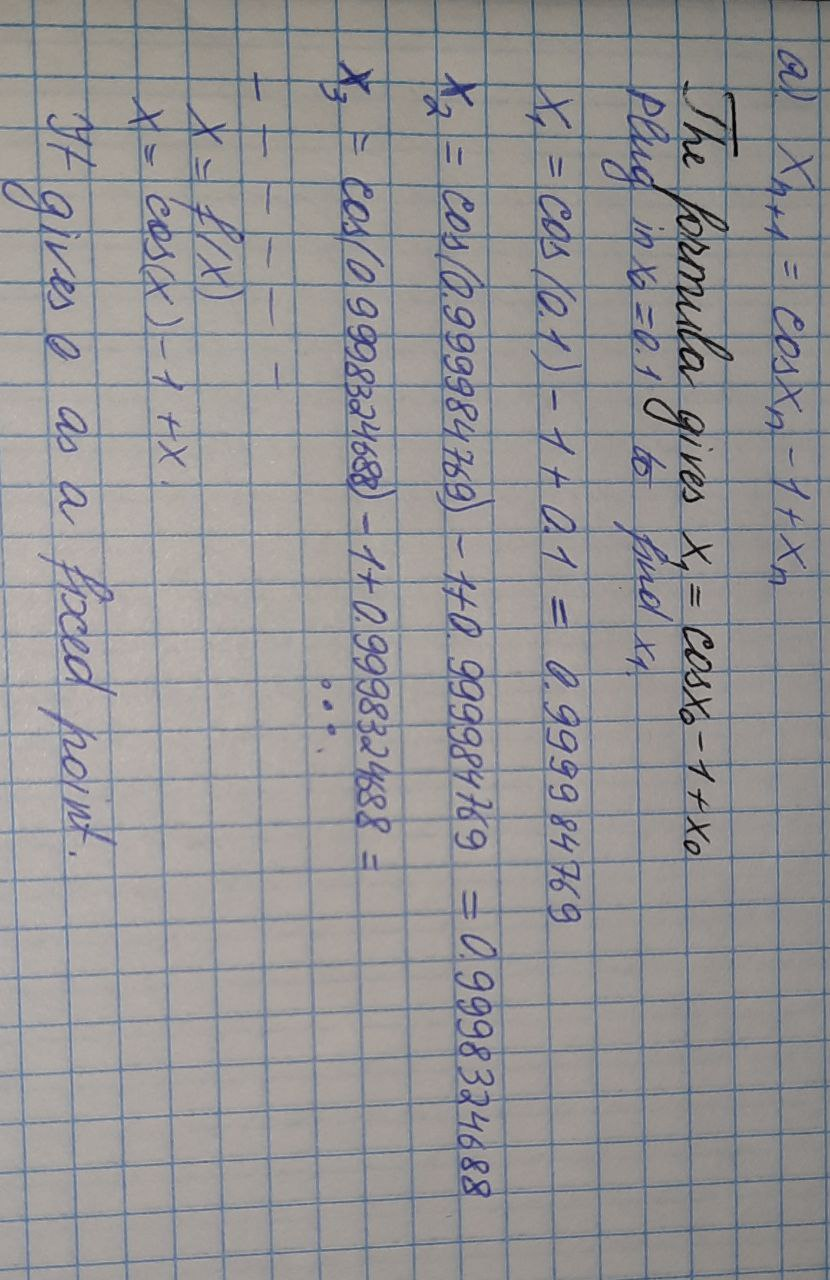 a) xₙ₊₁ = cosxₙ - 1 + xₙ
The formula gives x₁ = cosx₀ - 1 + x₀
plug in x₀ = 0.1 to find x₁.
x₁ = cos(0.1) - 1 + 0.1 = 0.999984769
x₂ = cos(0.999984769) - 1 + 0.999984769 = 0.9998324688
x₃ = cos(0.9998324688) - 1 + 0.9998324688 =
...
- - - - - -
x = f(x)
x = cos(x) - 1 + x.
It gives 0 as a fixed point.